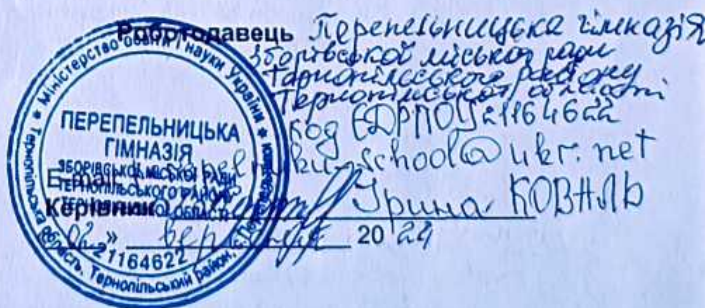 Роботодавець Перепельницька гімназія
Зборівської міської ради
Тернопільського району
Тернопільської області
код ЄДРПОУ 21164622
E-mail school@ukr.net
Керівник Ірина КОВАЛЬ
02 » вересня 2024
Міністерство освіти і науки України
ПЕРЕПЕЛЬНИЦЬКА
ГІМНАЗІЯ
ЗБОРІВСЬКОЇ МІСЬКОЇ РАДИ
ТЕРНОПІЛЬСЬКОГО РАЙОНУ
ТЕРНОПІЛЬСЬКОЇ ОБЛАСТІ
21164622
область, Тернопільський район,